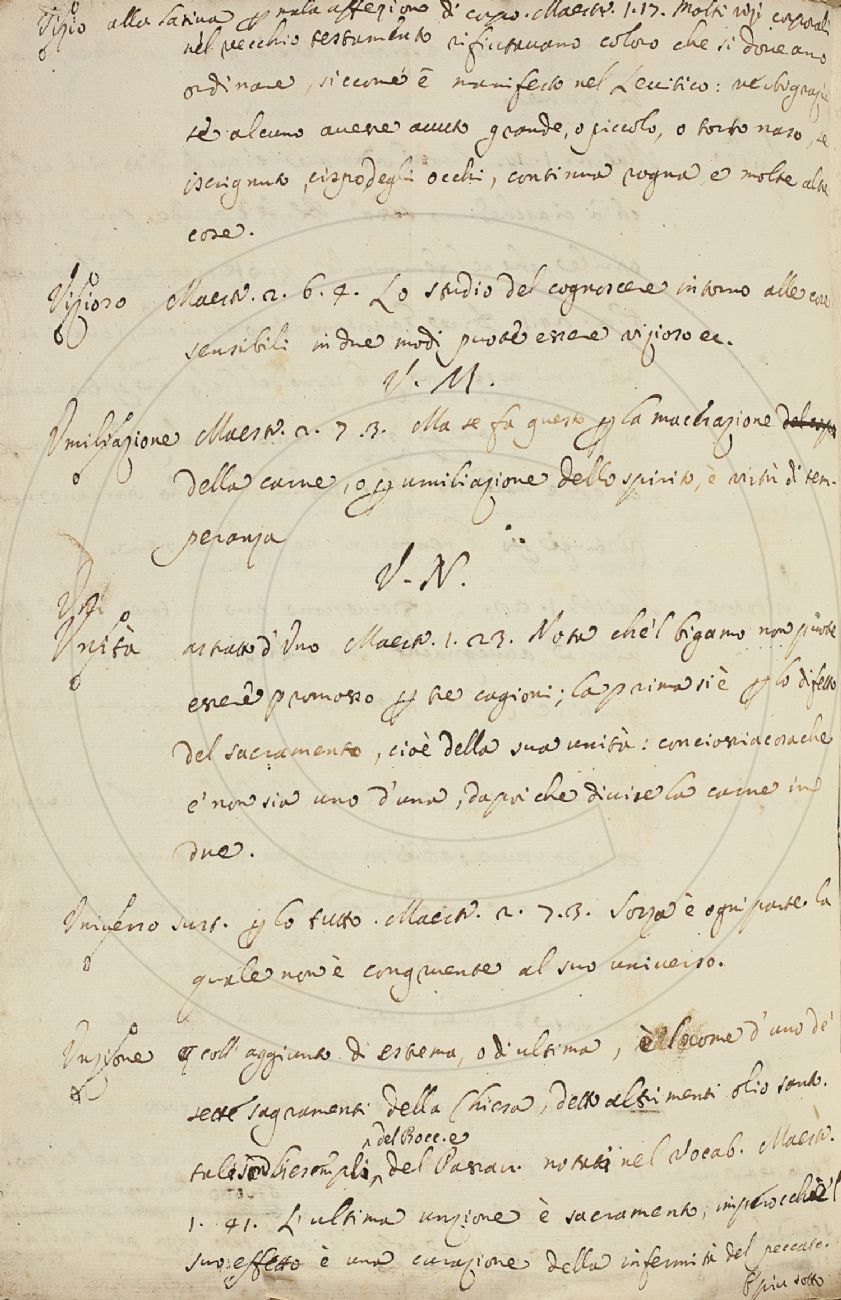 Vizio alla latina ꝑ mala affezione di corpo. Maestr. 1.17. Molti vizi corporali
nel vecchio testamento rifiutavano coloro che si doveano
ordinare, siccome è manifesto nel Levitico: verbigrazia
se alcuno avesse avuto grande, o piccolo, o torto naso, se
iscrignuto, cispo degli occhi, continua rogna, e molte altre
cose.
Vizioso Maestr. 2. 6. 4. Lo studio del cognoscere intorno alle cose
sensibili in due modi puote essere vizioso ec.
V. M.
Vmiliazione Maestr. 2. 7. 3. Ma se fa questo ꝑ la macerazione del corpo
della carne, o ꝑ umiliazione dello spirito, è virtù di tem-
peranza
V. N.
Vni
Vnità astratto d'Vno Maestr. 1. 23. Nota che'l bigamo non puote
essere promosso ꝑ tre cagioni; la prima si è ꝑ lo difetto
del sacramento, cioè della sua unità: conciossiacosache
e' non sia uno d'una, dapoi che divise la carne in
due.
Vniverso sust. ꝑ lo tutto. Maestr. 2. 7. 3. Sozza è ogni parte la
quale non è congruente al suo universo.
Vnzione coll' aggiunto di estrema, o di ultima, è lo nome d'uno de'
sette sagramenti della Chiesa, detto altrimenti olio santo.
del Bocc. e
esempli del Passav. notati nel Vocab. Maestr.
1. 41. L'ultima unzione è sacramento, imperocchè'l
suo effetto è una curazione della infermità del peccato.
E più sotto